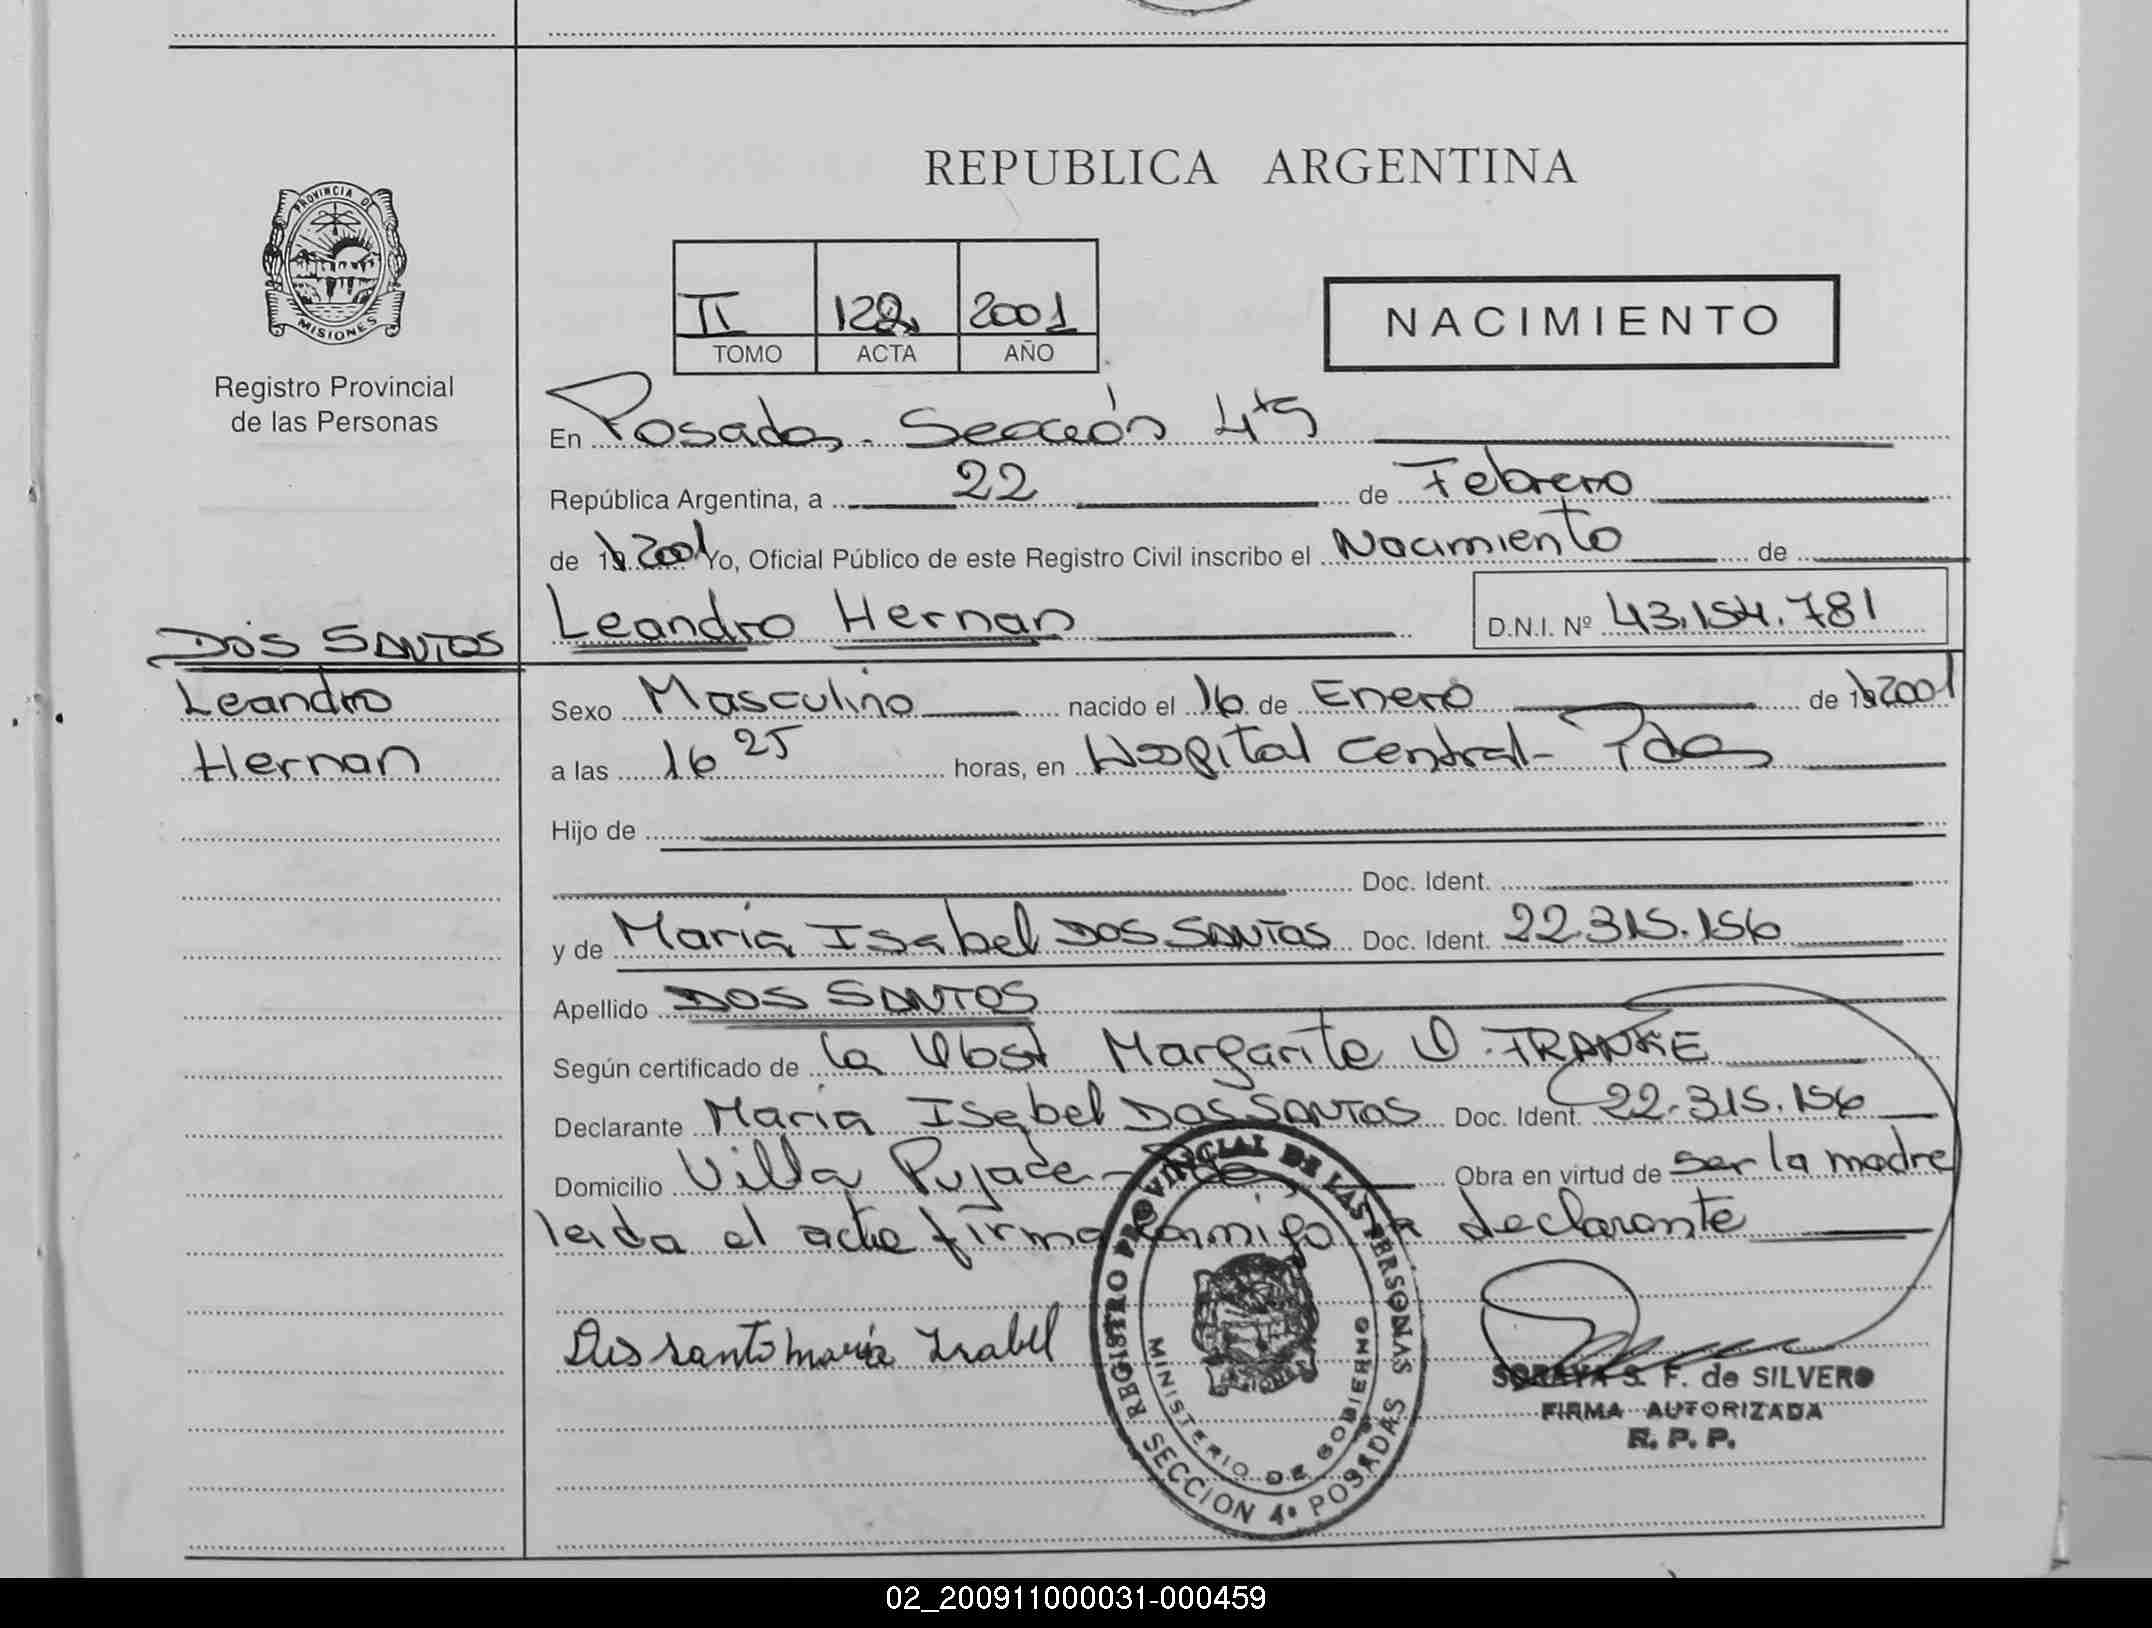 REPUBLICA ARGENTINA
PROVINCIA DE MISIONES
Registro Provincial
de las Personas
II 122 2001
TOMO ACTA AÑO
NACIMIENTO
En Posadas - Sección 4ta
República Argentina, a 22 de Febrero
de 2001 Yo, Oficial Público de este Registro Civil inscribo el Nacimiento de
Leandro Hernan D.N.I. Nº 43.154.781
DOS SANTOS
Leandro
Hernan
Sexo Masculino nacido el 16 de Enero de 2001
a las 16 25 horas, en Hospital Central - Pdas
Hijo de
Doc. Ident.
y de María Isabel DOS SANTOS Doc. Ident. 22.315.156
Apellido DOS SANTOS
Según certificado de la Obst Margarita FRANKE
Declarante María Isabel DOS SANTOS Doc. Ident. 22.315.156
Domicilio Villa Pujade - Pdas Obra en virtud de ser la madre
leida el acta firma conmigo la declarante
Dos santo maría Isabel
REGISTRO PROVINCIAL DE LAS PERSONAS
MINISTERIO DE GOBIERNO
SECCION 4ª POSADAS
SORAYA S. F. de SILVERO
FIRMA AUTORIZADA
R. P. P.
02_200911000031-000459